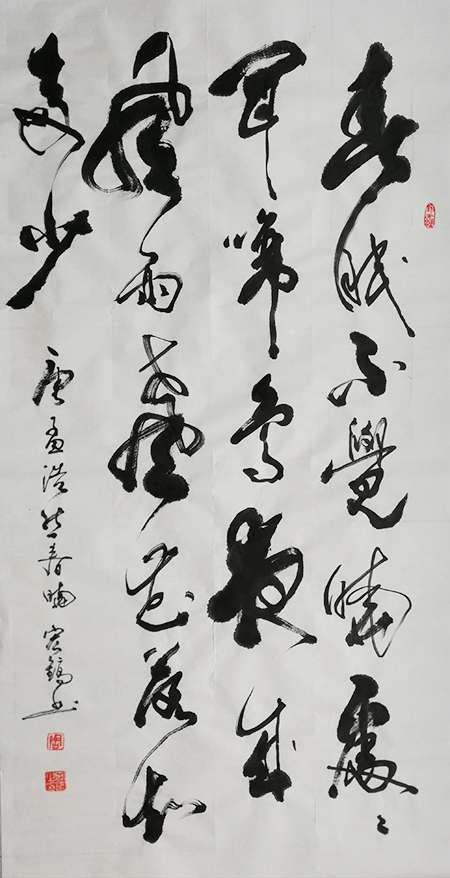 春眠不覺曉處々
聞啼鳥夜来
風雨聲花落知
多少
唐孟浩然春曉 書